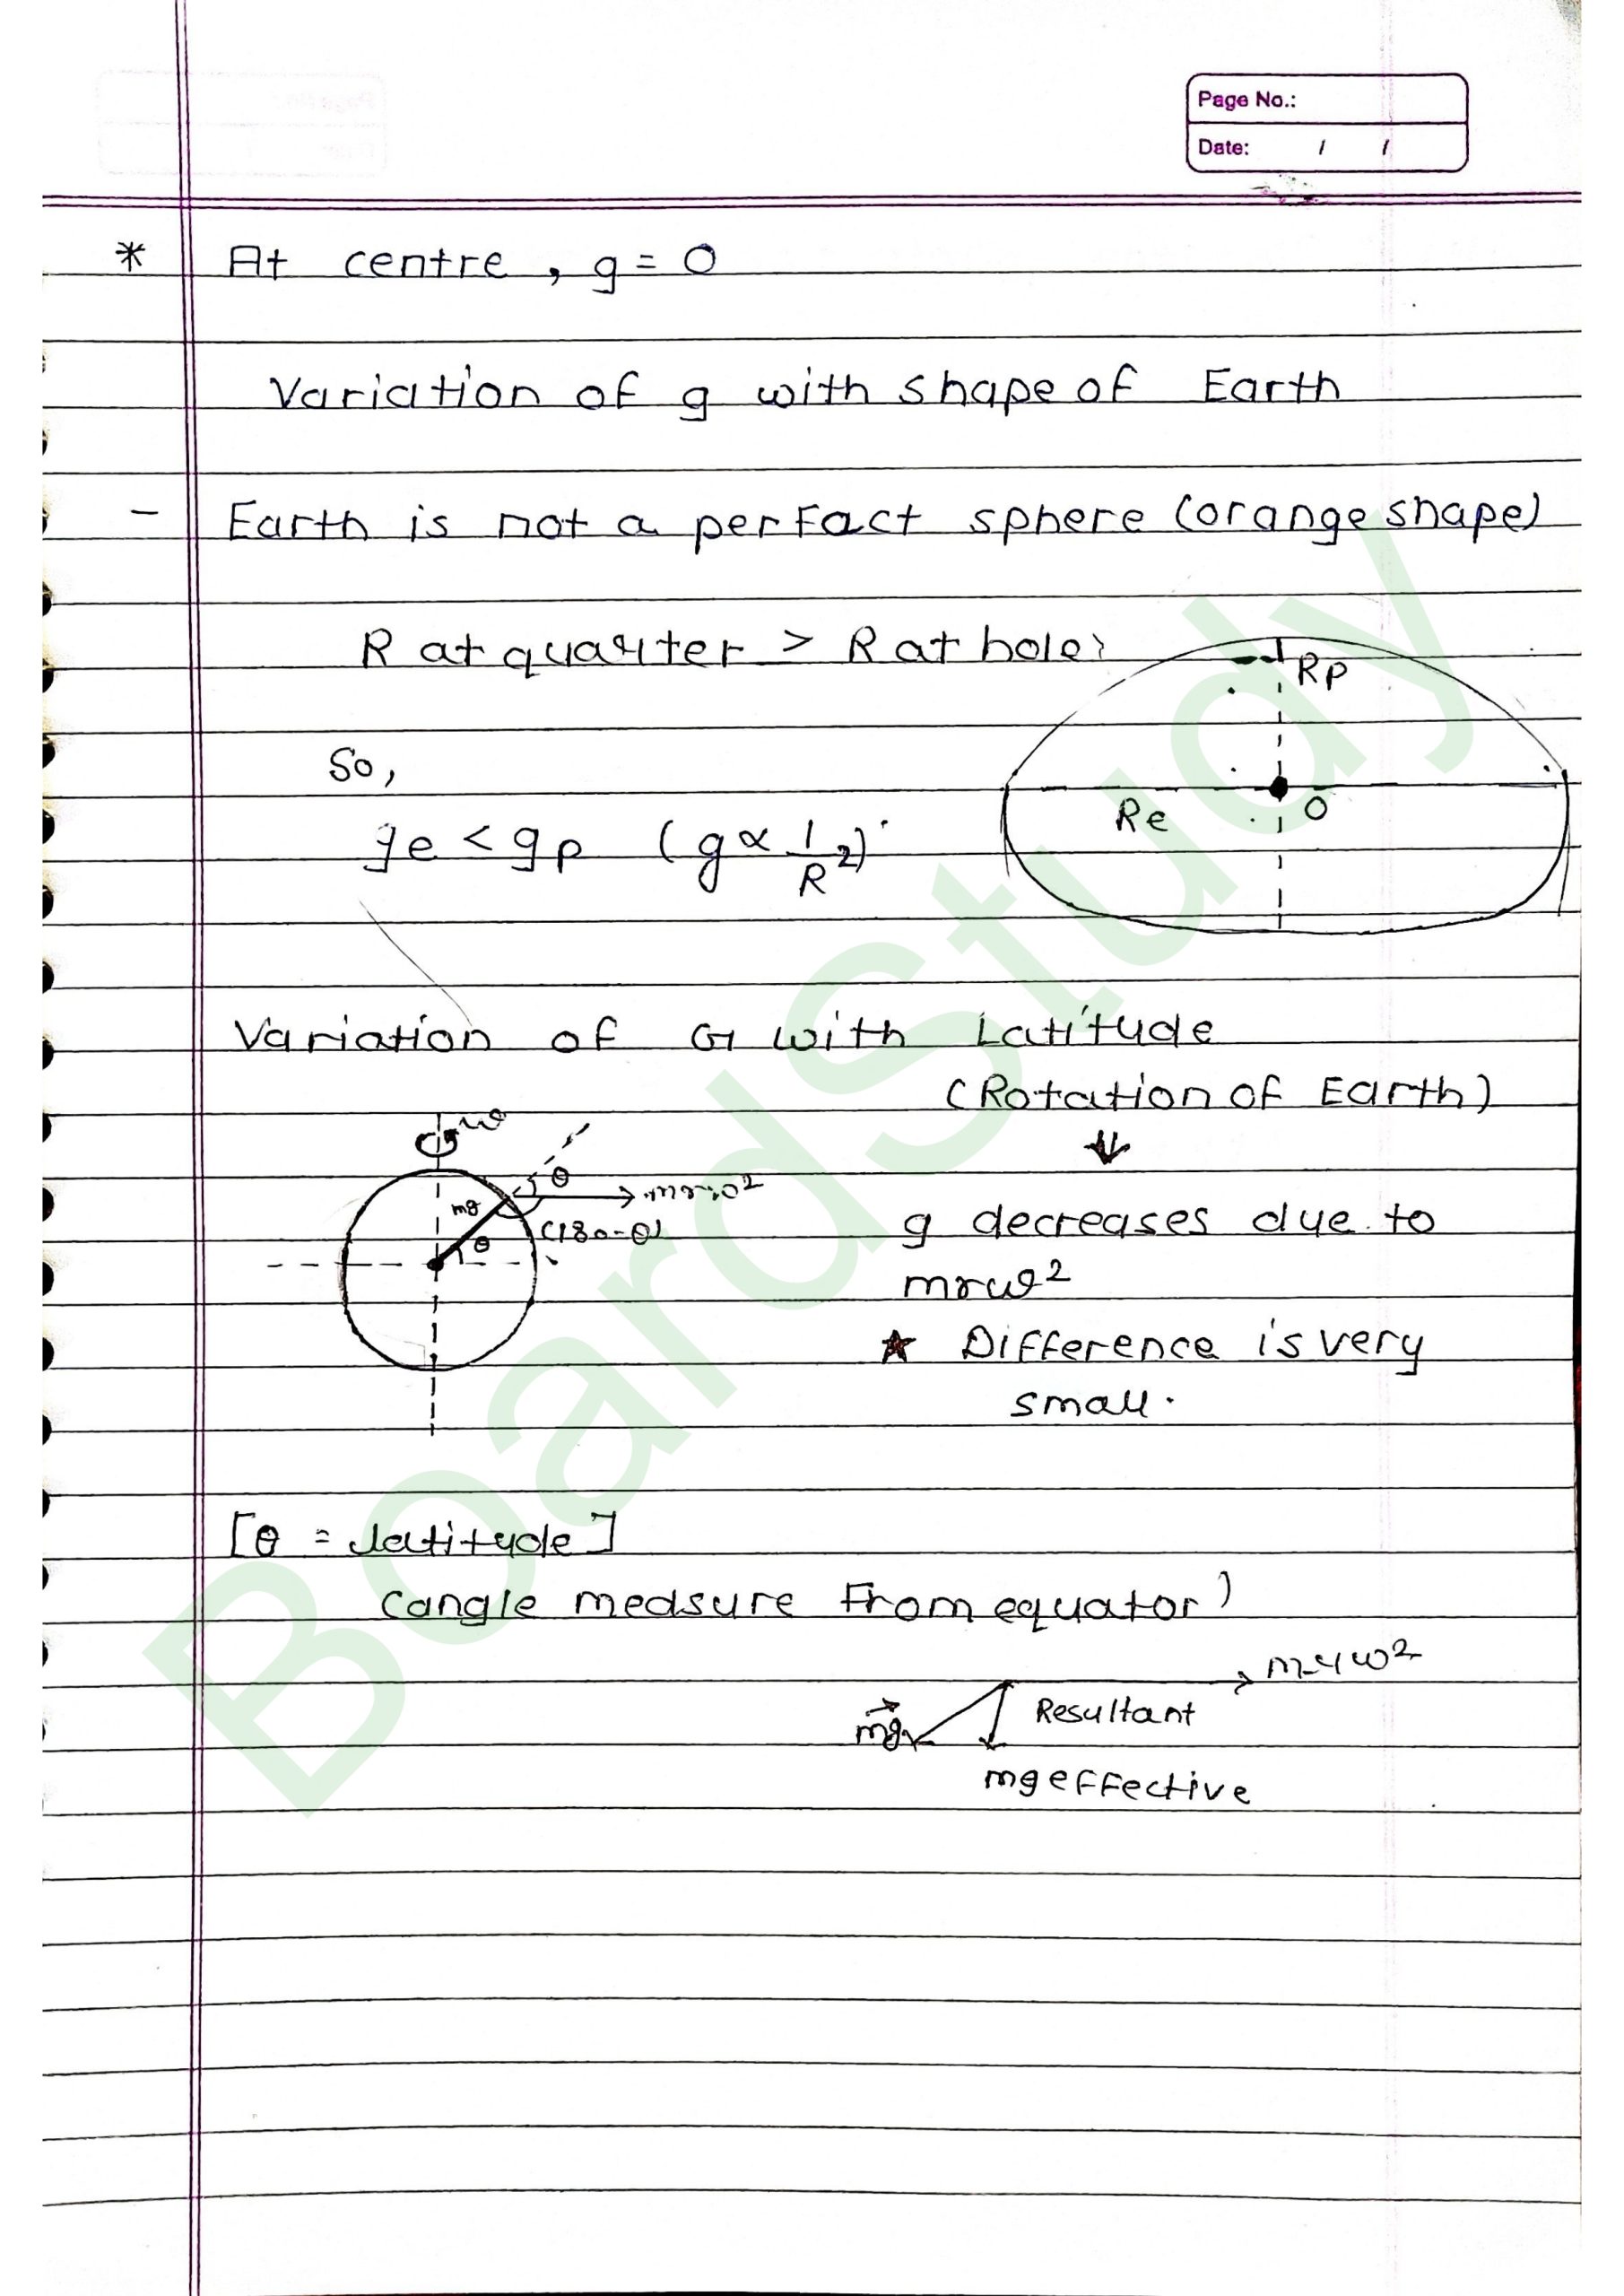 Page No.:
Date: / /
* At centre, g = 0
Variation of g with shape of Earth
- Earth is not a perfact sphere (orange shape)
R at quarter > R at hole
Rp
So,
Re O
ge < gp (g ∝ 1/R²)
Variation of G with Latitude
(Rotation of Earth)
ω
θ
mrω²
mg
(180-θ)
θ
g decreases due to
mrω²
★ Difference is very
small.
[θ = latitude]
(angle measure from equator)
mrω²
Resultant
mg
mg effective
BoardStudy